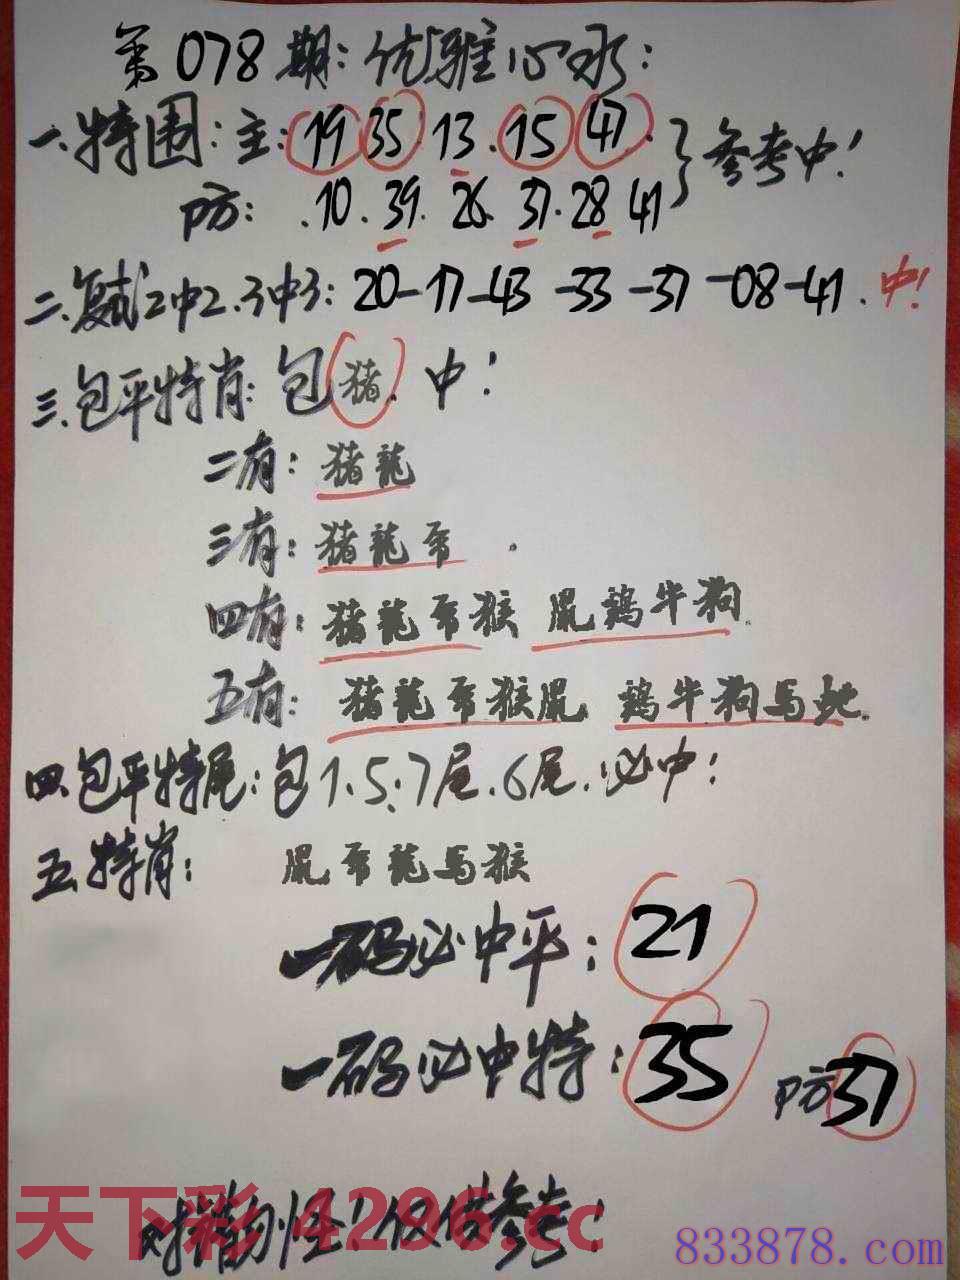 第078期:优雅心水:
一.特围:主:19 35.13.15 47.}参考中!
防:.10.39.26.37.28 41
二.复式2中2.3中3:20-17-43-33-37-08-41.中!
三.包平特肖:包猪.中!
二有:猪龍
三有:猪龍兔.
四有:猪龍兔猴 鼠鷄牛狗.
五有:猪龍兔猴鼠 鷄牛狗马蛇.
四.包平特尾:包1.5.7尾.6尾.必中!
五.特肖: 鼠兔龍马猴
一码必中平:21
一码必中特:35 防37
天下彩 4296.cc
对错勿怪!仅供参考!
833878.com